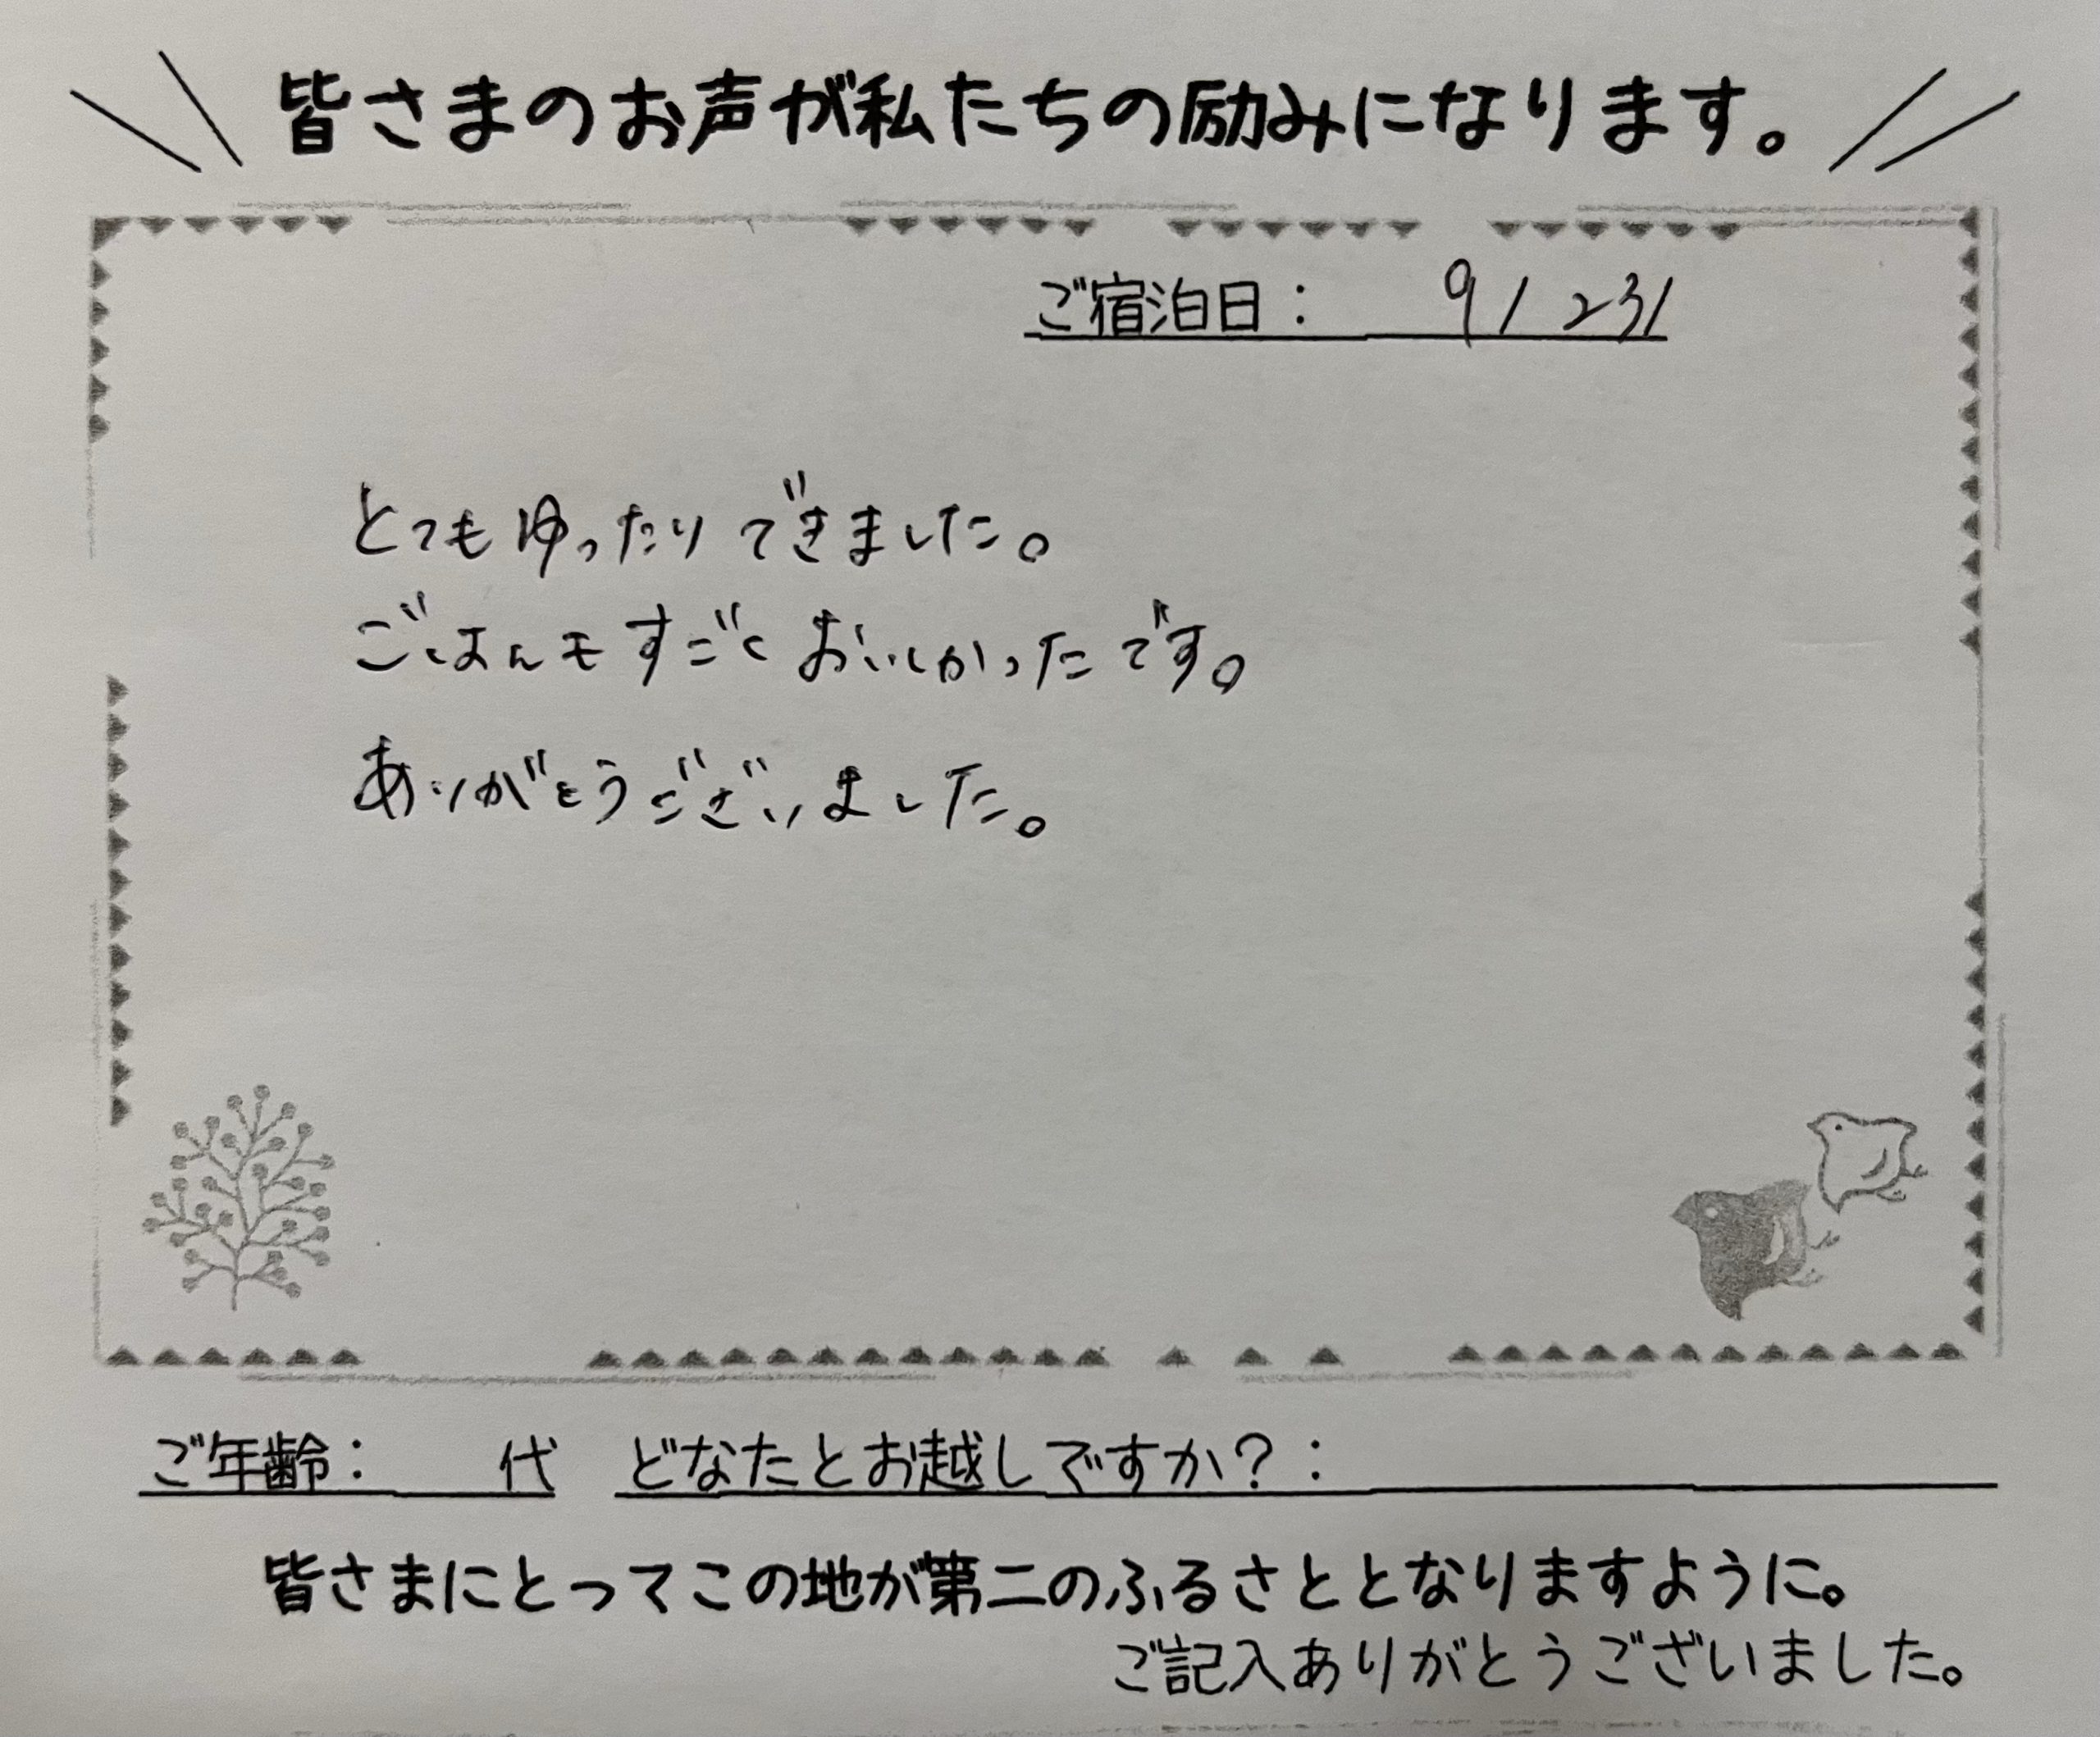 皆さまのお声が私たちの励みになります。
ご宿泊日： 9/23/
とてもゆったりできました。
ごはんもすごくおいしかったです。
ありがとうございました。
ご年齢： 代 どなたとお越しですか？：
皆さまにとってこの地が第二のふるさととなりますように。
ご記入ありがとうございました。